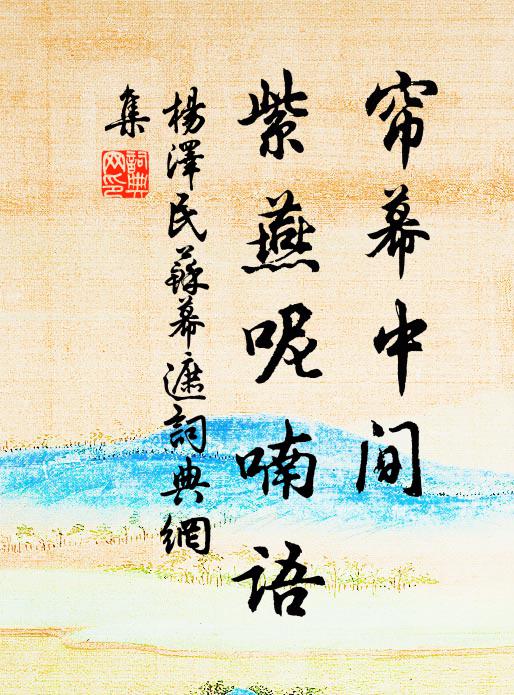 帘幕中间
紫燕呢喃语
楊澤民蘇幕遮詞典網
集
詞典网印